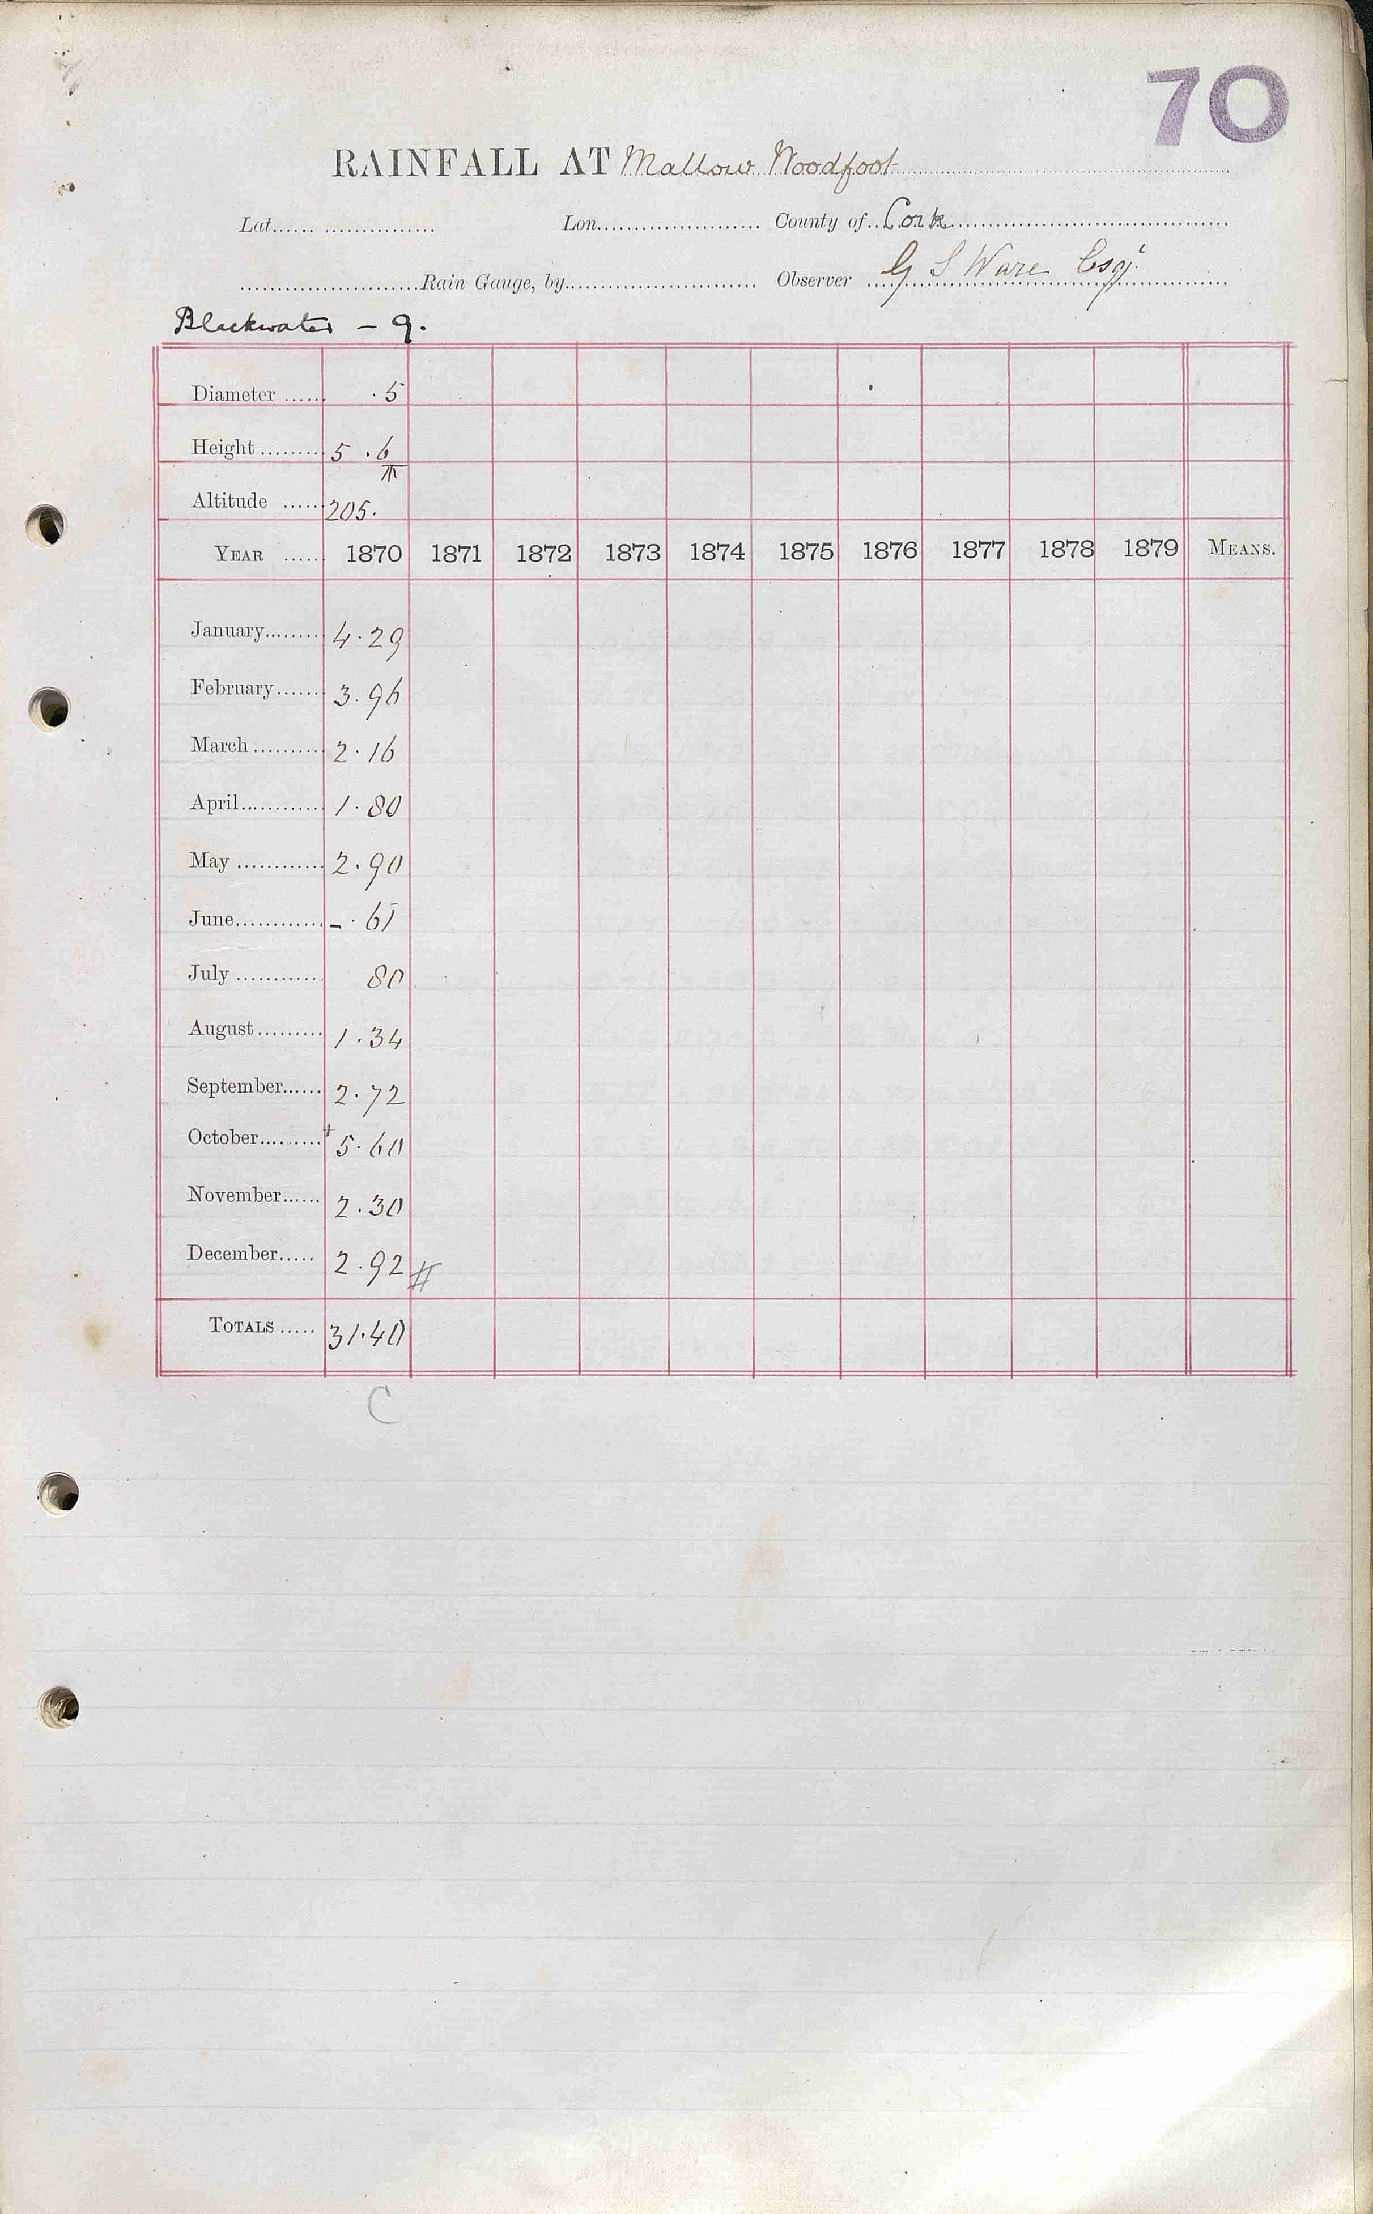 70
RAINFALL AT Mallow Woodfoot
Lat. Lon. County of Cork
Rain Gauge, by Observer G S Ware Esq.
Blackwater - 9.
Diameter ·5
Height 5 ·6
Altitude 205.
YEAR 1870 1871 1872 1873 1874 1875 1876 1877 1878 1879 MEANS.
January 4·29
February 3.96
March 2·16
April 1·80
May 2·90
June -·61
July 80
August 1·34
September 2·72
October + 5·60
November 2·30
December 2·92 #
TOTALS 31·40
C